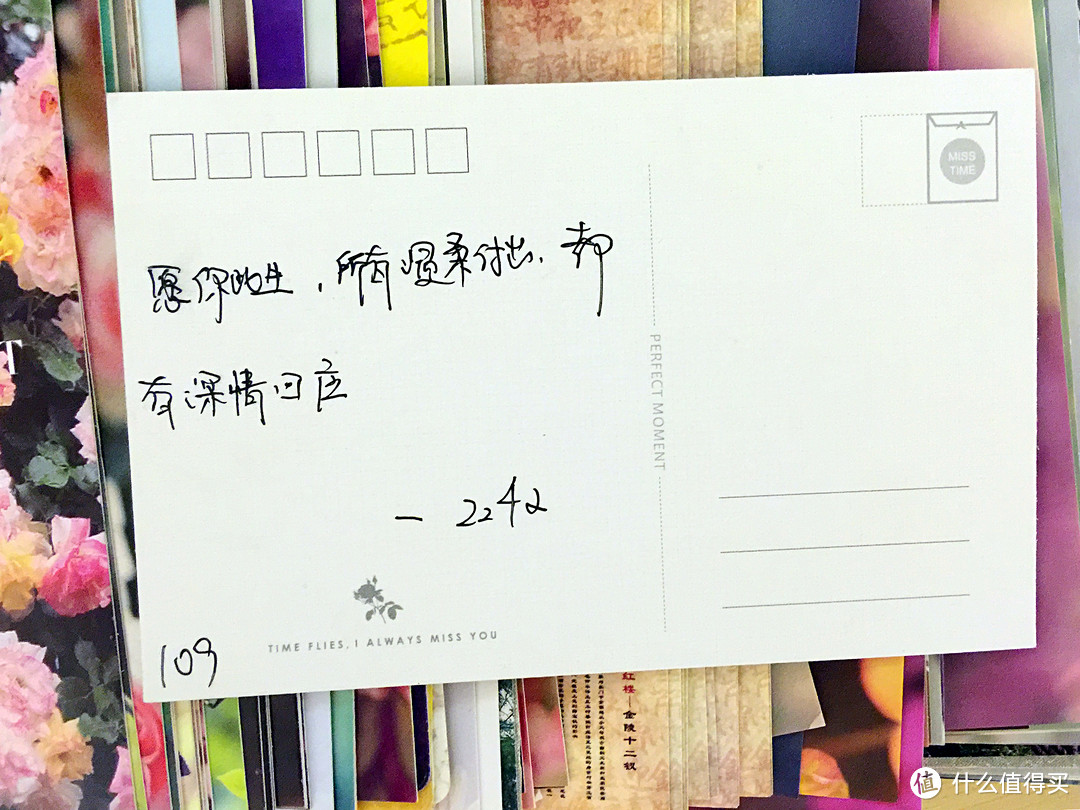 MISS
TIME
愿你的生，所有温柔付出，都
有深情回应
— 2242
PERFECT MOMENT
TIME FLIES, I ALWAYS MISS YOU
109
T
红楼—金陵十二钗
值 什么值得买